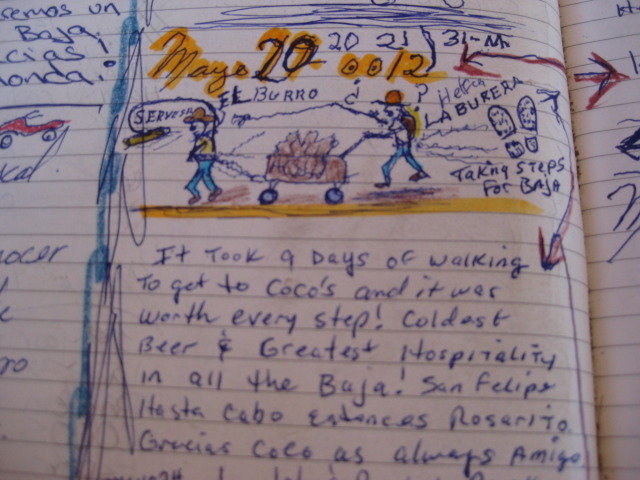 semos un
Baja,
cias
onda!
Mayo 20 20 21 31-M
2012
SERVESA
EL BURRO
LA BURERA
TAKING STEPS
FOR BAJA
cal
ocer
ro
It Took 9 Days of walking
To get to Coco's and it was
worth every step! Coldest
Beer & Greatest Hospitality
in all the Baja! San Felipe
Hasta Cabo entonces Rosarito
Gracias Coco as always Amigo